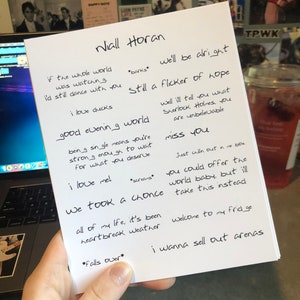 TPWK
Niall Horan
if the whole world
was watching
i'd still dance with you
*barks*
we'll be alright
still a flicker of hope
i love chicks
well i'll tell you what
Sherlock Holmes, you
are unbelievable
good evening world
being single means you're
strong enough to wait
for what you deserve
miss you
i love me!
*screams*
you could offer the
world baby but i'll
take this instead
we took a chance
all of my life, it's been
heartbreak weather
welcome to my fridge
*falls over*
i wanna sell out arenas